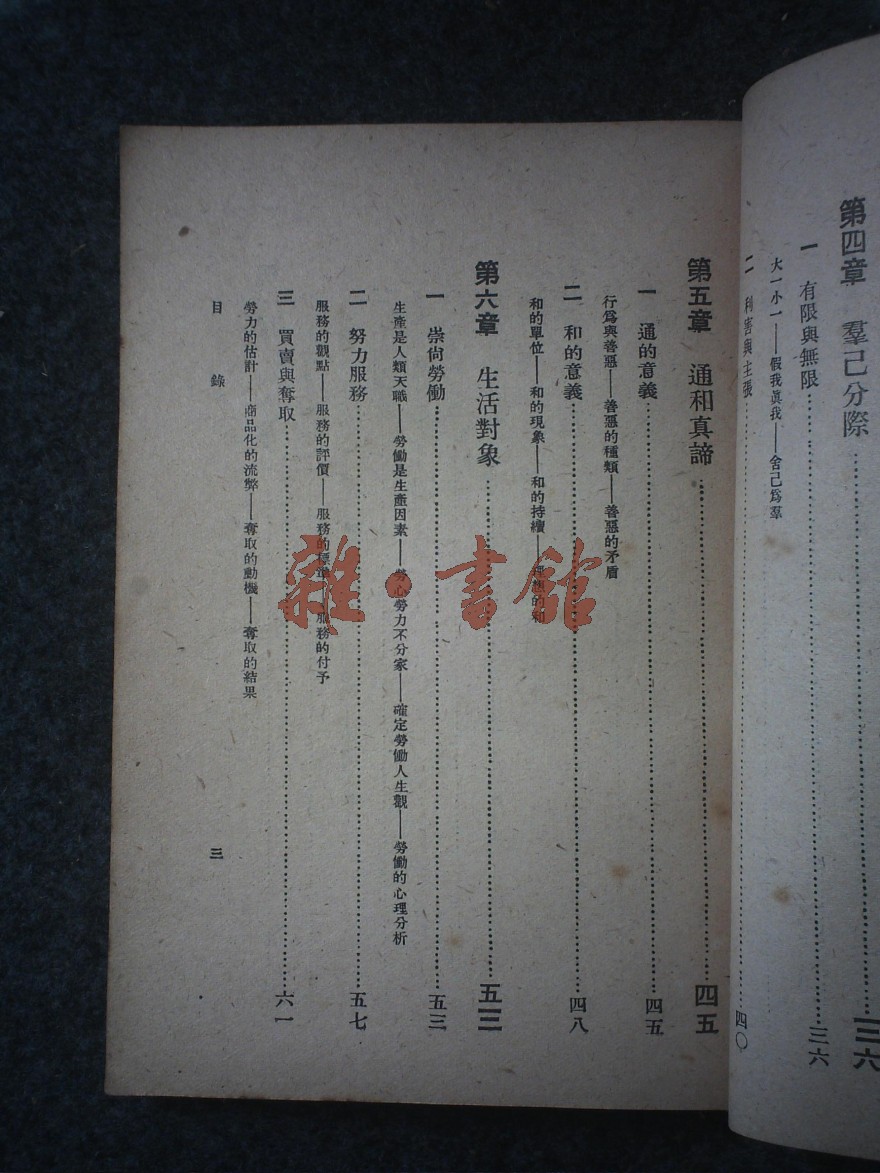 第四章　羣己分際……三六
一　有限與無限……三六
大一小一——假我眞我——舍己爲羣
二　利害與主張……四〇
第五章　通和真諦……四五
一　通的意義……四五
行爲與善惡——善惡的種類——善惡的矛盾
二　和的意義……四八
和的單位——和的現象——和的持續——理想的和
第六章　生活對象……五三
一　崇尙勞働……五三
生產是人類天職——勞働是生產因素——勞心勞力不分家——確定勞働人生觀——勞働的心理分析
二　努力服務……五七
服務的觀點——服務的評價——服務的標準——服務的付予
三　買賣與奪取……六一
勞力的估計——商品化的流弊——奪取的動機——奪取的結果
目　錄　三
雜·書館